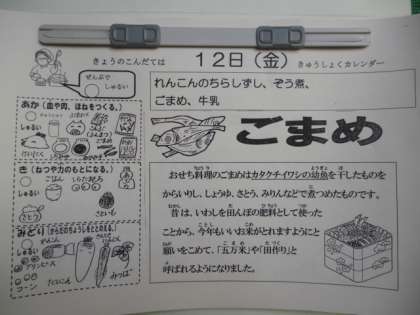 きょうのこんだては
12日(金)
きゅうしょくカレンダー
ぜんぶで
しゅるい
れんこんのちらしずし、ぞう煮、
ごまめ、牛乳
あか(血や肉、ほねをつくる。)
しゅるい
き(ねつや力のもとになる。)
しゅるい
ごはん
さとう
さといも
みどり(からだのちょうしをととのえる。)
しゅるい
れんこん
グリンピース
コーン
だいこん
みつば
ごまめ
おせち料理のごまめはカタクチイワシの幼魚を干したものを
からいりし、しょうゆ、さとう、みりんなどで煮つめたものです。
昔は、いわしを田んぼの肥料として使った
ことから、今年もいいお米がとれますようにと
願いをこめて、「五万米」や「田作り」と
呼ばれるようになりました。